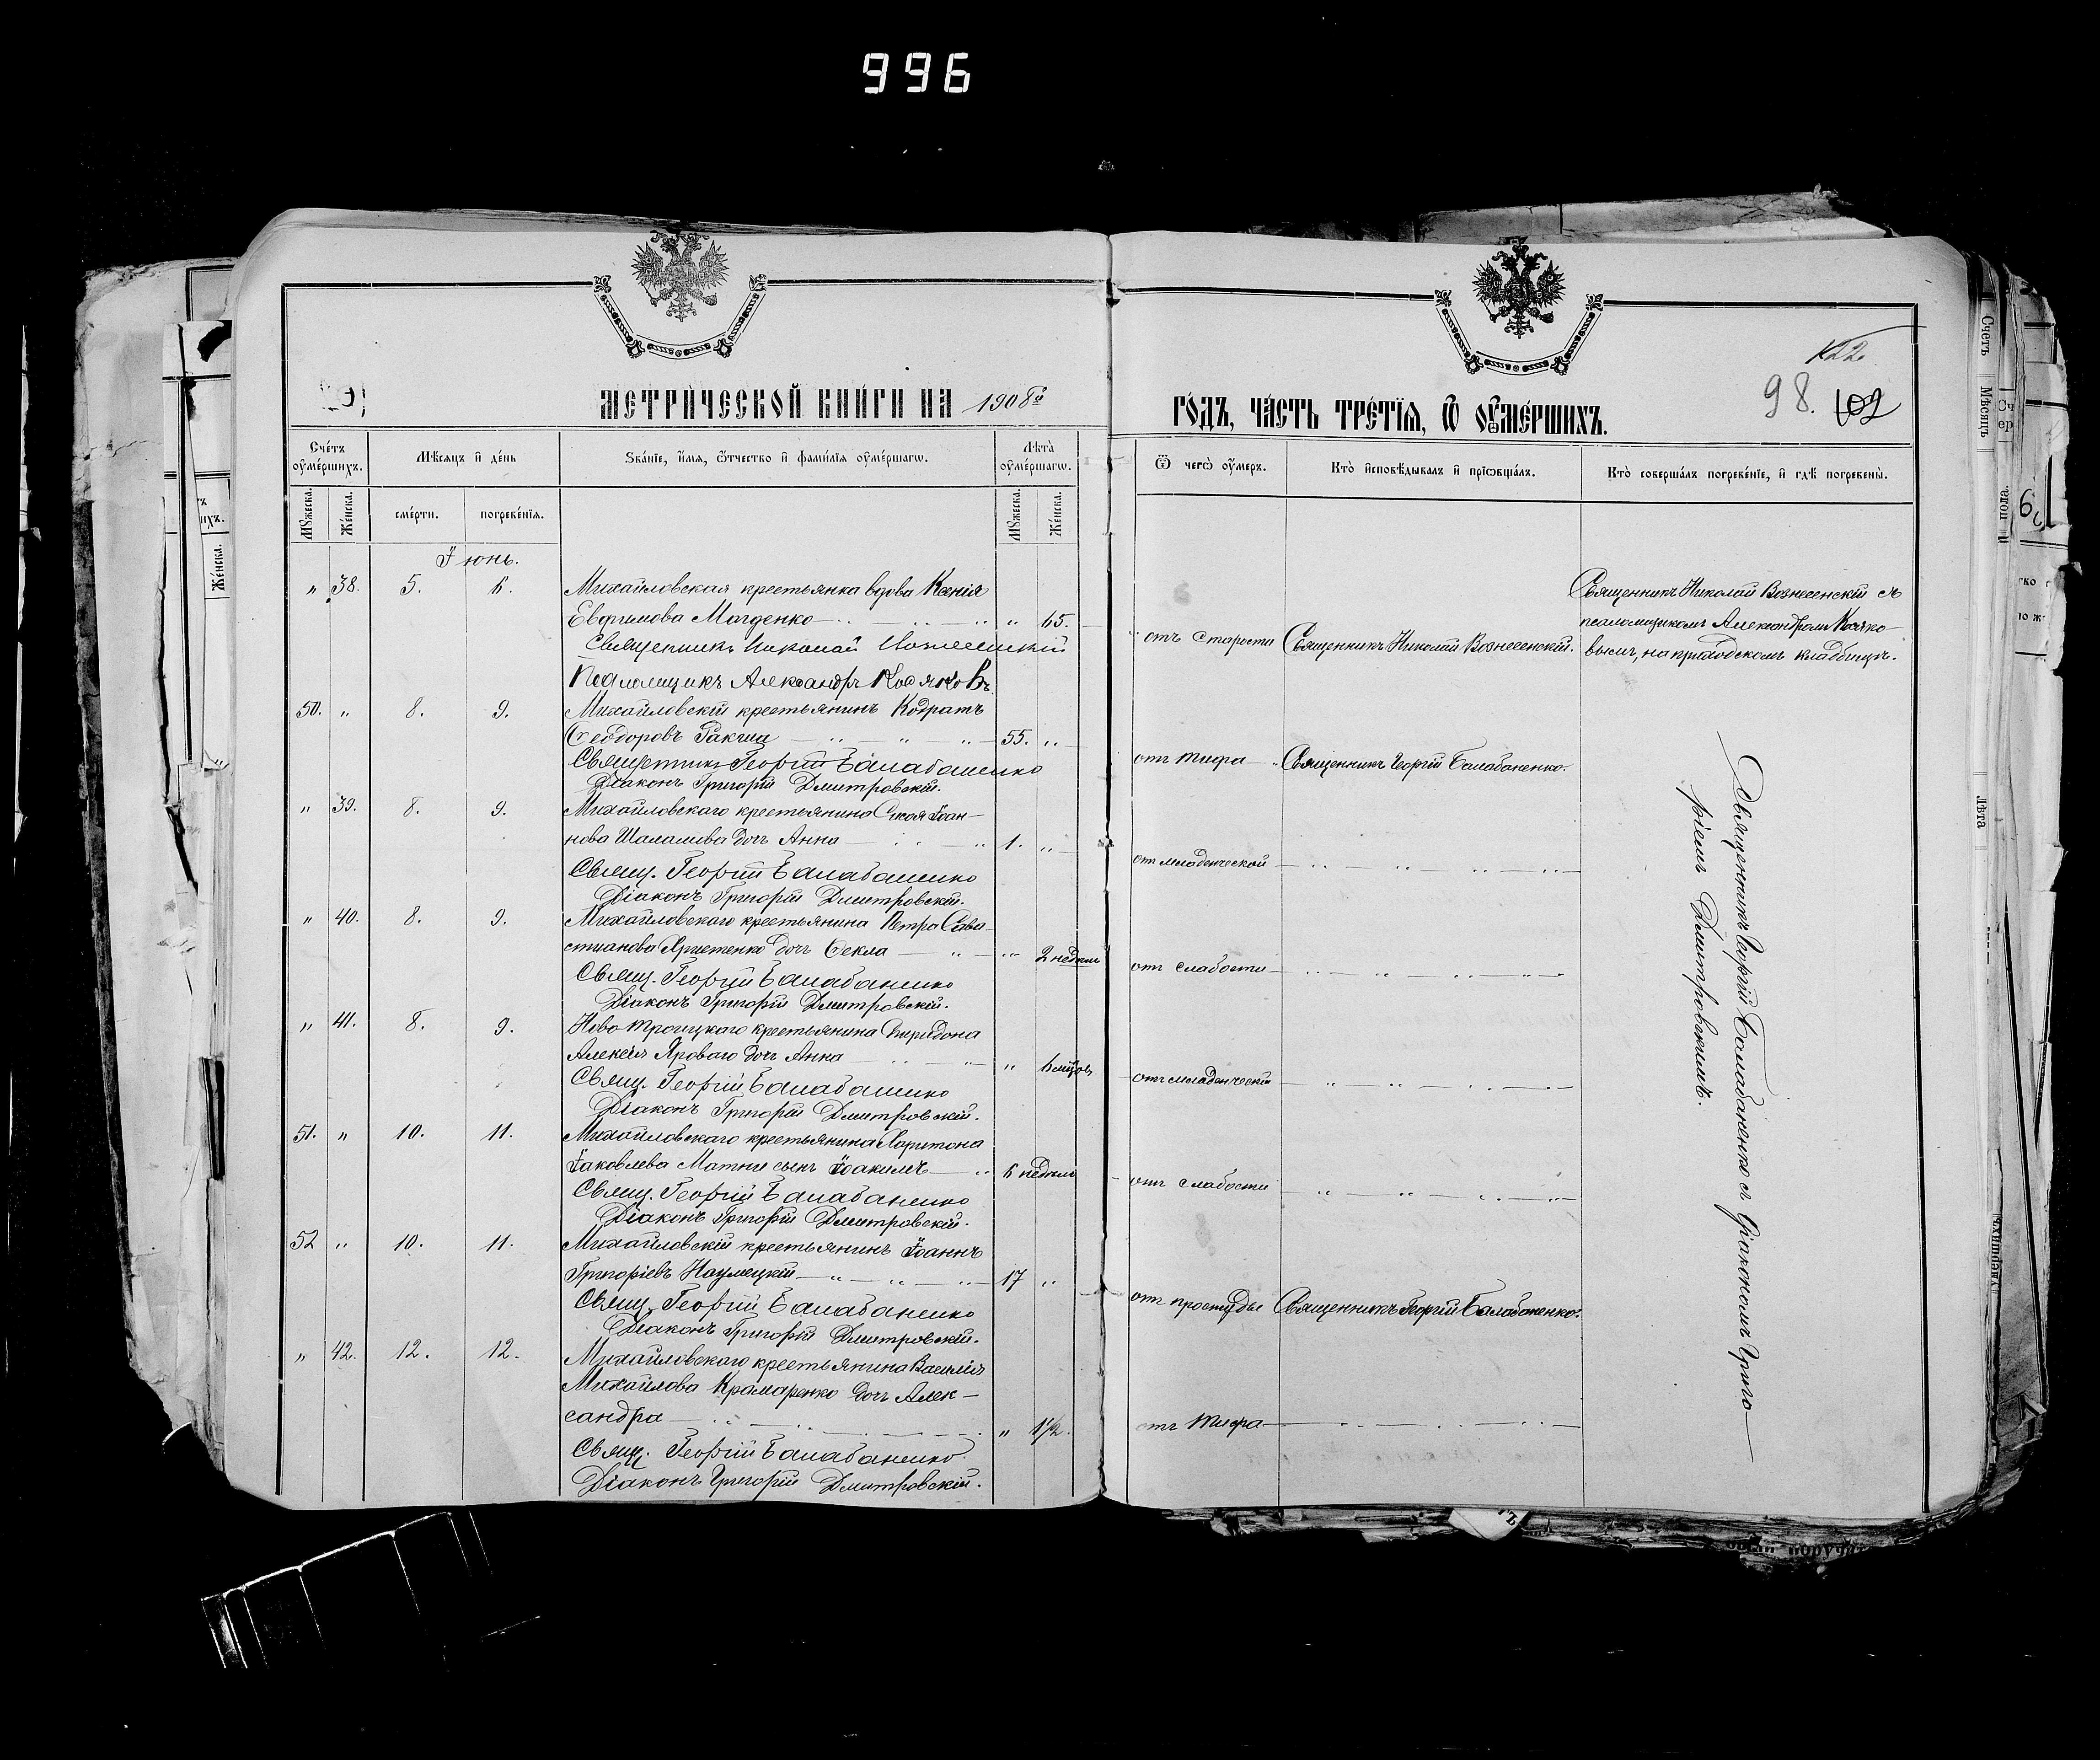 996
МЕТРИЧЕСКОЙ КНИГИ НА 1908й
ГОДЪ, ЧАСТЬ ТРЕТІЯ, Ѿ ОУМЕРШИХЪ.
98. 102
Счетъ оумершихъ.
Мѣсяцъ и день
Званіе, имя, отчество и фамилія оумершагѡ.
Лѣта оумершагѡ.
Ѿ чегѡ оумеръ.
Кто исповѣдывалъ и пріобщалъ.
Кто совершалъ погребеніе, и гдѣ погребены.
Мꙋжеска.
Женска.
смерти.
погребенія.
Мꙋжеска.
Женска.
Іюнь.
" 38. 5. 6. Михайловская крестьянка вдова Ксенія
Евфимова Магденко " 65.
отъ старости Священникъ Николай Вознесенскій.
Священникъ Николай Вознесенскій съ
псаломщикомъ Александромъ Косяко-
вымъ, на приходскомъ кладбищѣ.
Священникъ Николай Вознесенскій
Псаломщикъ Александръ Косяковъ
50. " 8. 9. Михайловскій крестьянинъ Кодратъ
Ѳеодоровъ Ракша 55. "
отъ тифа Священникъ Георгій Балабаненко.
Священникъ Георгій Балабаненко
Діаконъ Григорій Дмитровскій.
" 39. 8. 9. Михайловскаго крестьянина Іоан-
нова Шаламова дочь Анна 1. "
отъ младенческой
Свящ. Георгій Балабаненко
Діаконъ Григорій Дмитровскій.
" 40. 8. 9. Михайловскаго крестьянина Петра Сава-
стианова Христенко дочь Ѳекла " 2 недѣли
отъ слабости
Свящ. Георгій Балабаненко
Діаконъ Григорій Дмитровскій.
" 41. 8. 9. Ново-Троицкаго крестьянина Спиридона
Алексія Яроваго дочь Анна " 6 мцовъ
отъ младенческой
Свящ. Георгій Балабаненко
Діаконъ Григорій Дмитровскій.
51. " 10. 11. Михайловскаго крестьянина Харитона
Іаковлева Матни сынъ Іоакимъ 6 недѣль
отъ слабости
Свящ. Георгій Балабаненко
Діаконъ Григорій Дмитровскій.
52 " 10. 11. Михайловскій крестьянинъ Іоаннъ
Григоріевъ Наумецкій 17 "
отъ простуды Священникъ Георгій Балабаненко.
Свящ. Георгій Балабаненко
Діаконъ Григорій Дмитровскій.
" 42. 12. 12. Михайловскаго крестьянина Василія
Михайлова Крамаренко дочь Алек-
сандра " 1½.
отъ тифа
Свящ. Георгій Балабаненко
Діаконъ Григорій Дмитровскій.
Священникъ Георгій Балабаненко съ діакономъ Григо-
ріемъ Дмитровскимъ.